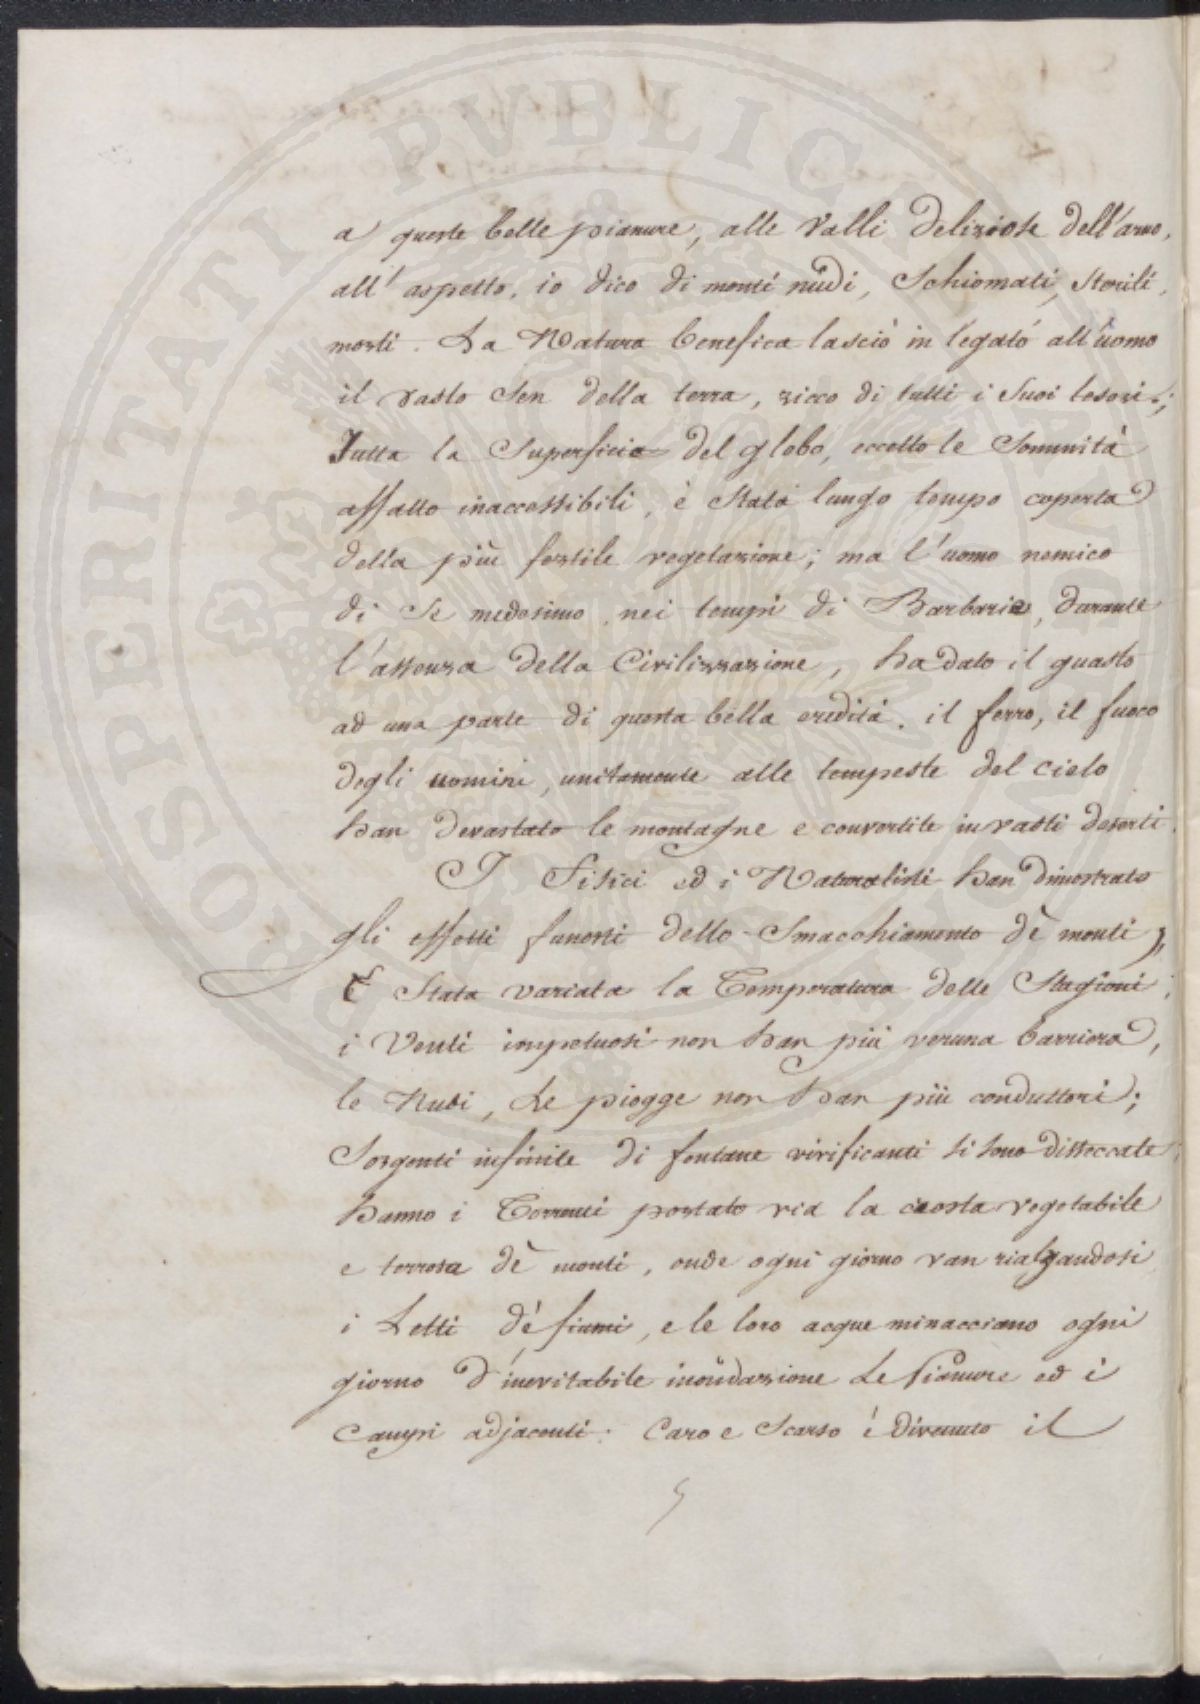 PROSPERITATI PUBLICAE
a queste belle pianure, alle Valli deliziose dell'arno,
all'aspetto, io dico di monti nudi, Schiomati, Sterili,
morti. La Natura benefica lasciò in legato all'uomo
il vasto Sen della terra, ricco di tutti i Suoi tesori;
Tutta la Superficie del globo, eccetto le Sommità
affatto inaccessibili, è Stata lungo tempo coperta
della più fertile vegetazione; ma l'uomo nemico
di Se medesimo, nei tempi di Barbarie, durante
l'assenza della Civilizzazione, ha dato il guasto
ad una parte di questa bella eredità. il ferro, il fuoco
degli uomini, unitamente alle tempeste del cielo
han devastato le montagne e convertite in vasti deserti.
I Fisici ed i Naturalisti han dimostrato
gli effetti funesti dello Smacchiamento de' monti,
È Stata variata la Temperatura delle Stagioni;
i Venti impetuosi non han più veruna barriera,
le Nubi, Le piogge non han più conduttori;
Sorgenti infinite di fontane vivificanti si sono disseccate
hanno i Torrenti portato via la crosta vegetabile
e terrosa de' monti, onde ogni giorno van rialzandosi
i Letti de' fiumi, e le loro acque minacciano ogni
giorno d'inevitabile inondazione Le Pianure ed i
Campi adjacenti. Caro e Scarso è divenuto il